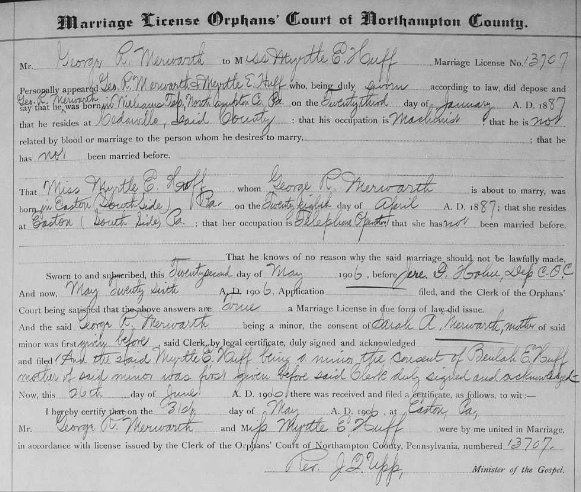 Marriage License Orphans' Court of Northampton County.
Mr. George R. Merwarth to Miss Myrtle E. Huff Marriage License No. 13707
Personally appeared Geo. R. Merwarth & Myrtle E. Huff who, being duly sworn according to law, did depose and
say that he was born in Williams Tsp, Northampton Co. Pa. on the Twenty third day of January A. D. 1887
Geo. R. Merwarth
that he resides at Kedaville, Said County ; that his occupation is Machinist ; that he is not
related by blood or marriage to the person whom he desires to marry, ; that he
has not been married before.
That Miss Myrtle E. Huff whom George R. Merwarth is about to marry, was
born in Easton (South Side) Pa on the Twenty eighth day of April A. D. 1887; that she resides
at Easton (South Side) Pa. ; that her occupation is Telephone Operator that she has not been married before.
That he knows of no reason why the said marriage should not be lawfully made.
Sworn to and subscribed, this Twenty second day of May 1906, before Jere. F. Dep C.O.C
And now, May twenty sixth A. D. 1906, Application filed, and the Clerk of the Orphans'
Court being satisfied that the above answers are true a Marriage License in due form of law did issue.
And the said George R. Merwarth being a minor, the consent of Sarah A. Merwarth, mother of said
minor was first given before said Clerk, by legal certificate, duly signed and acknowledged
and filed And the said Myrtle E. Huff being a minor the consent of Beulah E. Huff
mother of said minor was first given before said Clerk duly signed and acknowledged
Now, this 26th day of June A. D. 1906, there was received and filed a certificate, as follows, to wit:—
I hereby certify that on the 31st day of May A. D. 1906, at Easton, Pa,
Mr. George R. Merwarth and Miss Myrtle E. Huff were by me united in Marriage,
in accordance with license issued by the Clerk of the Orphans' Court of Northampton County, Pennsylvania, numbered 13707.
Rev. J. Q. Upp, Minister of the Gospel.